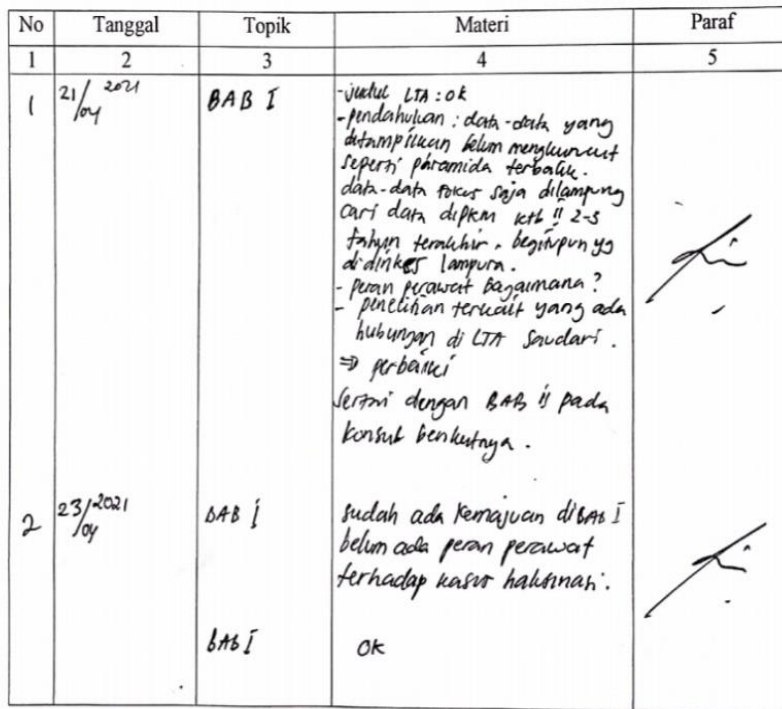 No Tanggal Topik Materi Paraf
1 2 3 4 5
1 21/04 2021 BAB I -judul LTA : ok
-pendahuluan : data-data yang
ditampilkan belum mengkurucut
seperti piramida terbalik.
data-data fokus saja dilampung
cari data dipkm ktb II 2-3
tahun terakhir. begitupun yg
didinkes lampura.
- peran perawat bagaimana?
- penelitian terkait yang ada
hubungan di LTA saudari.
⇒ perbaiki
Sertai dengan BAB II pada
konsul berikutnya.
2 23/04 2021 BAB I sudah ada kemajuan di BAB I
belum ada peran perawat
terhadap kasus halusinasi.
BAB I OK